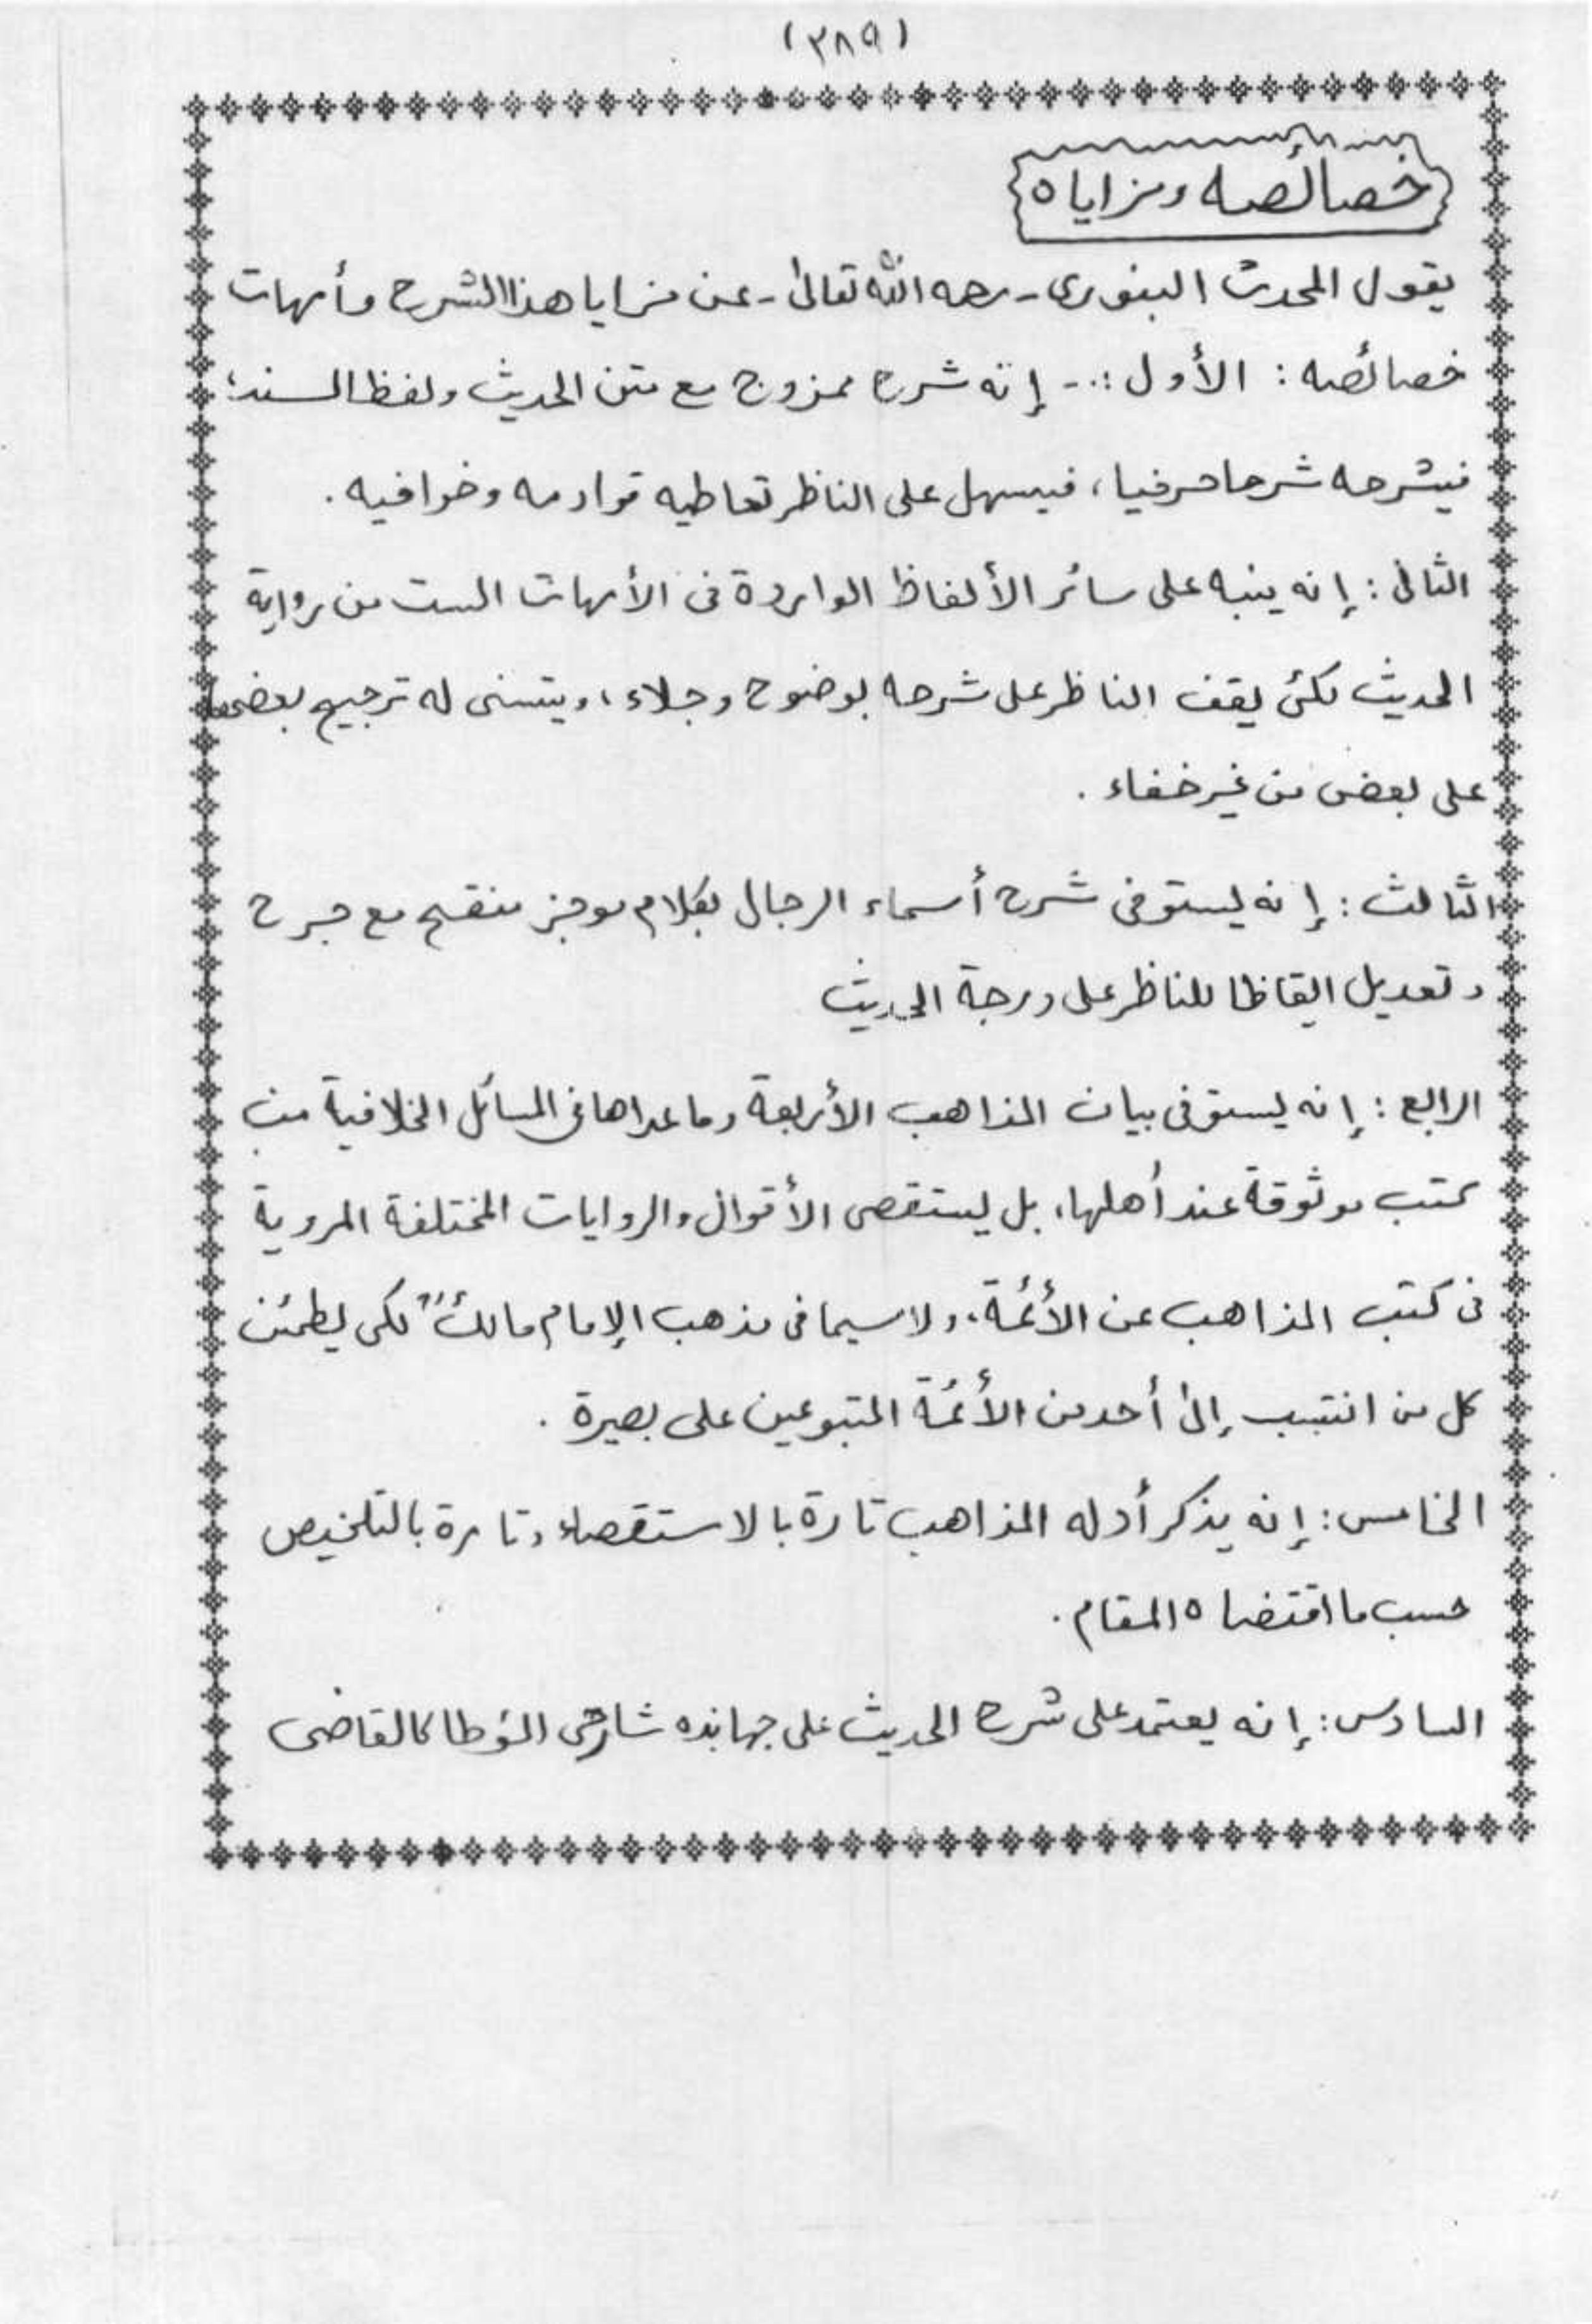 (٣٨٩)
خصائصه ومزاياه
يقول المحدث البنوري - رحمه الله تعالىٰ - عن مزايا هذا الشرح وأمهات
خصائصه : الأول :- إنه شرح ممزوج مع متن الحديث ولفظ السند؛
فيشرحه شرحا حرفيا، فيسهل على الناظر تعاطيه قوادمه وخوافيه .
الثانى : إنه ينبه على سائر الألفاظ الواردة فى الأمهات الست من رواية
الحديث لكى يقف الناظر على شرحه بوضوح وجلاء، ويتسنى له ترجيح بعضها
على بعض من غير خفاء .
الثالث : إنه يستوفى شرح أسماء الرجال بكلام موجز منقح مع جرح
وتعديل ايقاظا للناظر على درجة الحديث
الرابع : إنه يستوفى بيان المذاهب الأربعة وما عداها فى المسائل الخلافية من
كتب موثوقة عند أهلها، بل يستقصى الأقوال والروايات المختلفة المروية
فى كتب المذاهب عن الأئمة، ولا سيما فى مذهب الإمام مالك لكى يطمئن
كل من انتسب إلىٰ أحد من الأئمة المتبوعين على بصيرة .
الخامس : إنه يذكر أدله المذاهب تارة بالاستقصاء وتارة بالتلخيص
حسب ما اقتضاه المقام .
السادس : إنه يعتمد على شرح الحديث على جهابذه شارحى المؤطا كالقاضى